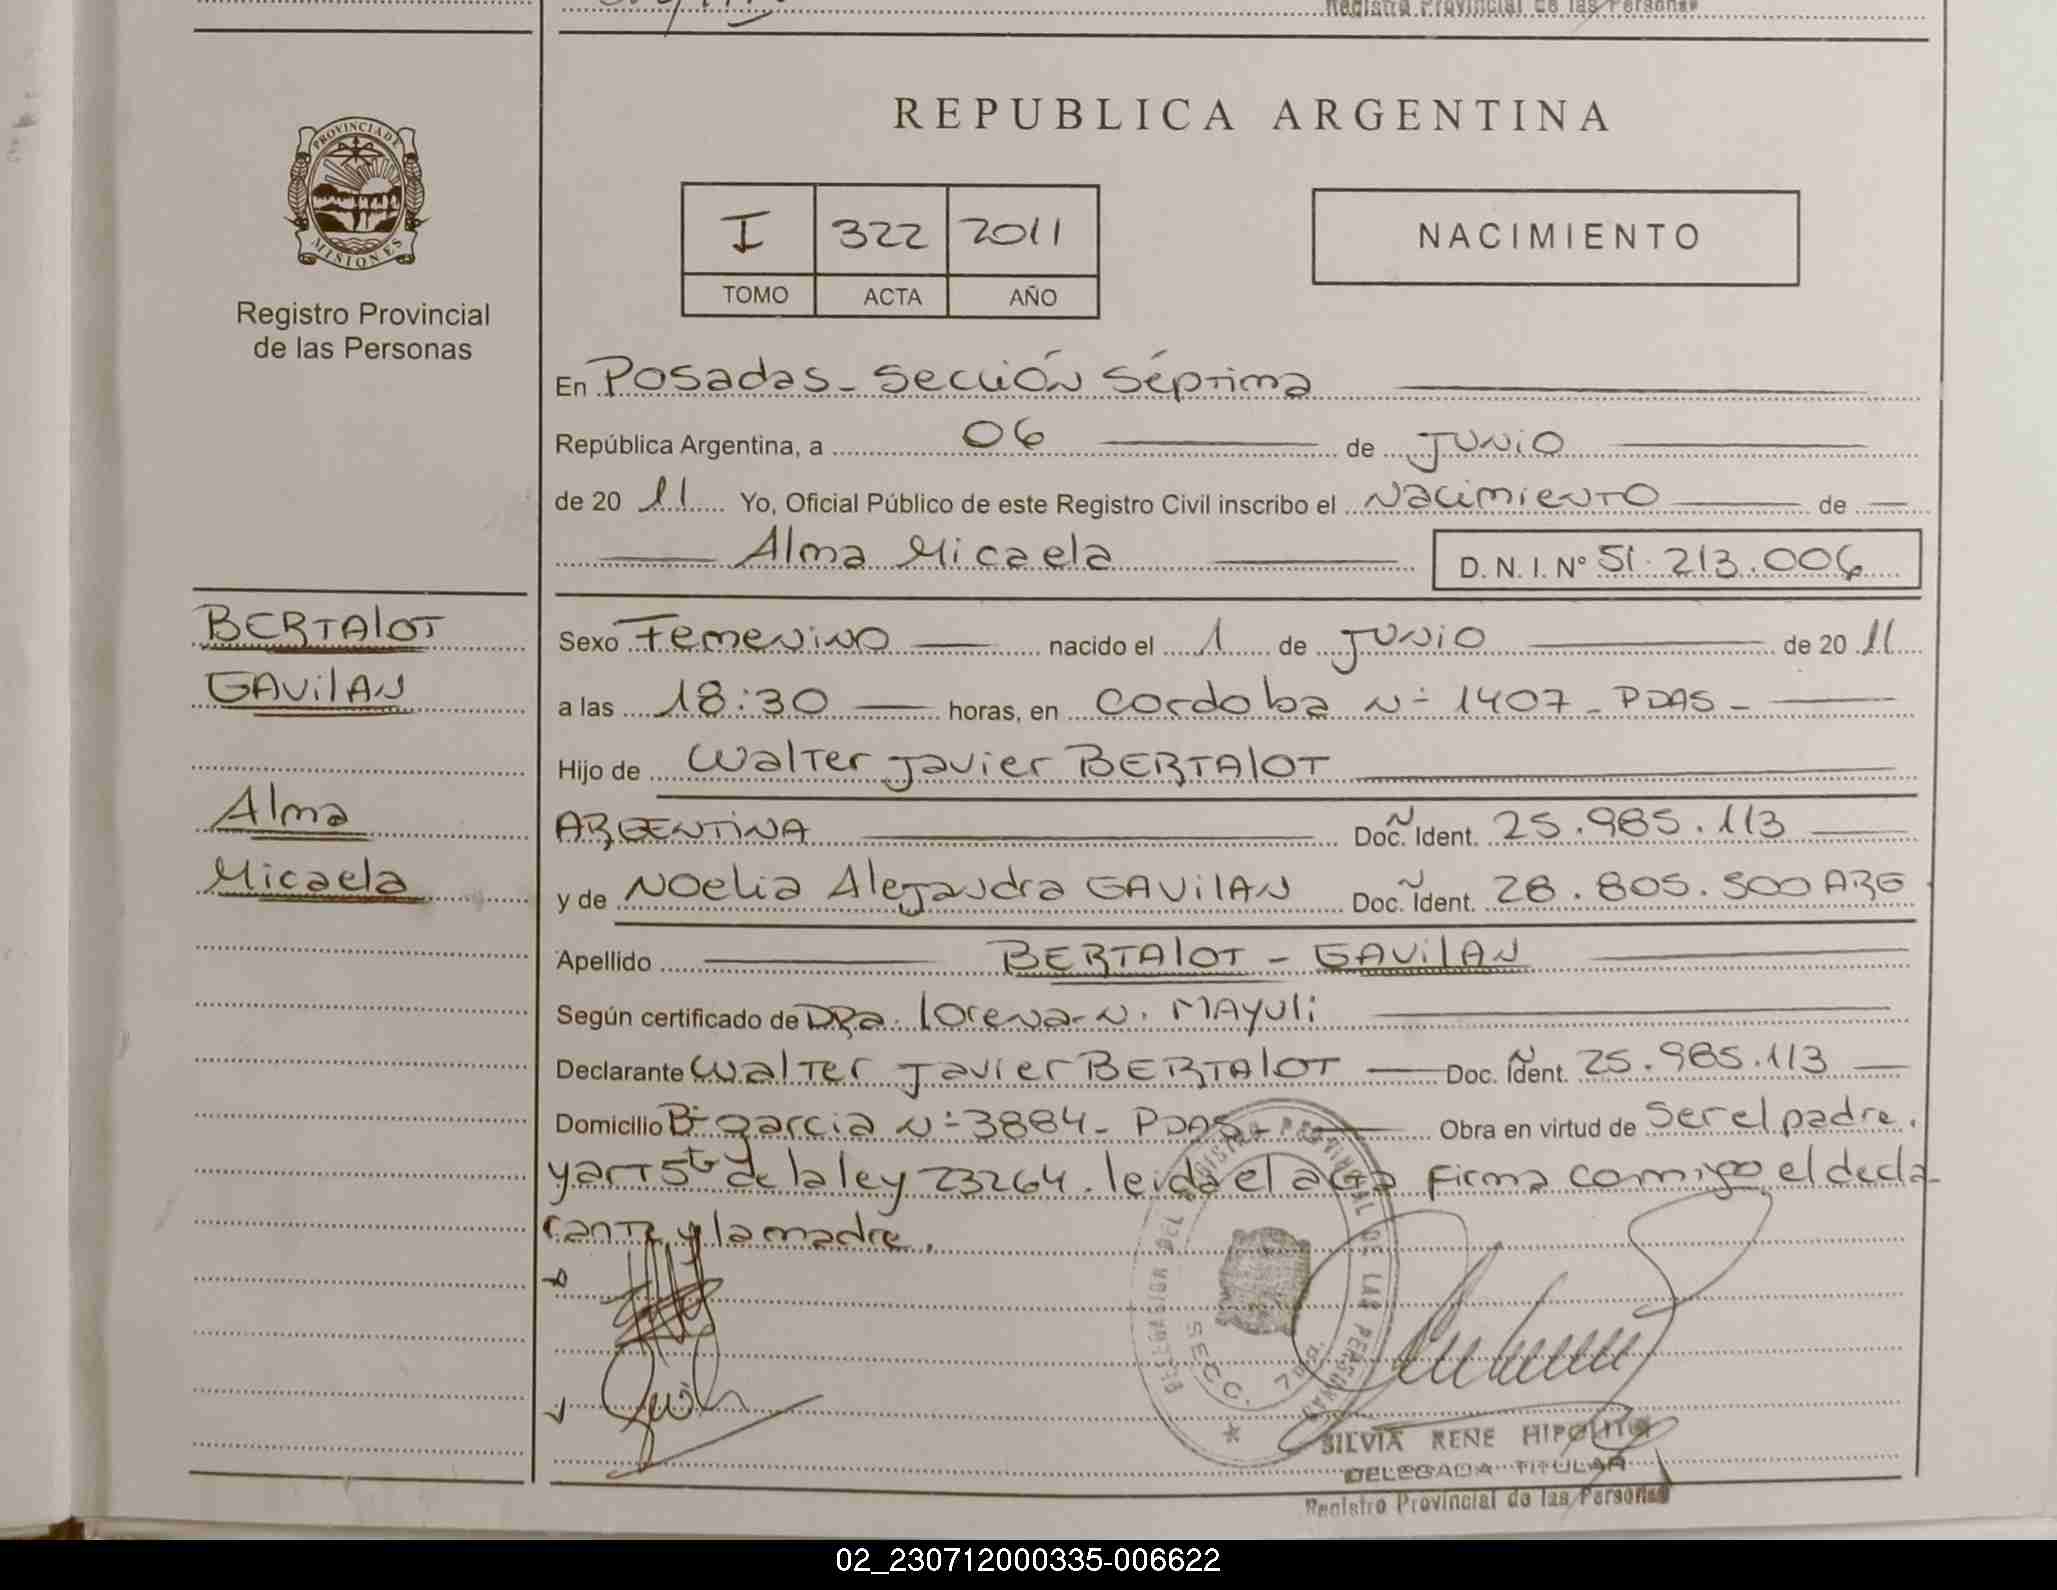 Registro Provincial de las Personas
REPUBLICA ARGENTINA
PROVINCIA DE
MISIONES
Registro Provincial
de las Personas
I 322 2011
TOMO ACTA AÑO
NACIMIENTO
En Posadas - Sección Séptima
República Argentina, a 06 de JUNIO
de 20 11 Yo, Oficial Público de este Registro Civil inscribo el Nacimiento de
Alma Micaela D. N. I. Nº 51.213.006
BERTAlOT
GAVilAN
Alma
Micaela
Sexo Femenino nacido el 1 de JUNIO de 20 11
a las 18:30 horas, en Cordoba Nº 1407 - PDAS -
Hijo de Walter Javier BERTAlOT
ARGENTINA Doc. Ident. 25.985.113
y de Noelia Alejandra GAVilAN Doc. Ident. 28.805.500 ARG
Apellido BERTAlOT - GAVilAN
Según certificado de DRa. lorena N. MAYUli
Declarante Walter Javier BERTAlOT Doc. Ident. 25.985.113
Domicilio Bº garcia Nº 3884 - PDAS - Obra en virtud de Ser el padre.
y art 5to de la ley 23264. leida el acta firma comigo, el decla-
rante y la madre.
DELEGACION DEL REGISTRO PROVINCIAL DE LAS PERSONAS
SECC. 7a
SILVIA RENE HIPOLITO
DELEGADA TITULAR
Registro Provincial de las Personas
02_230712000335-006622